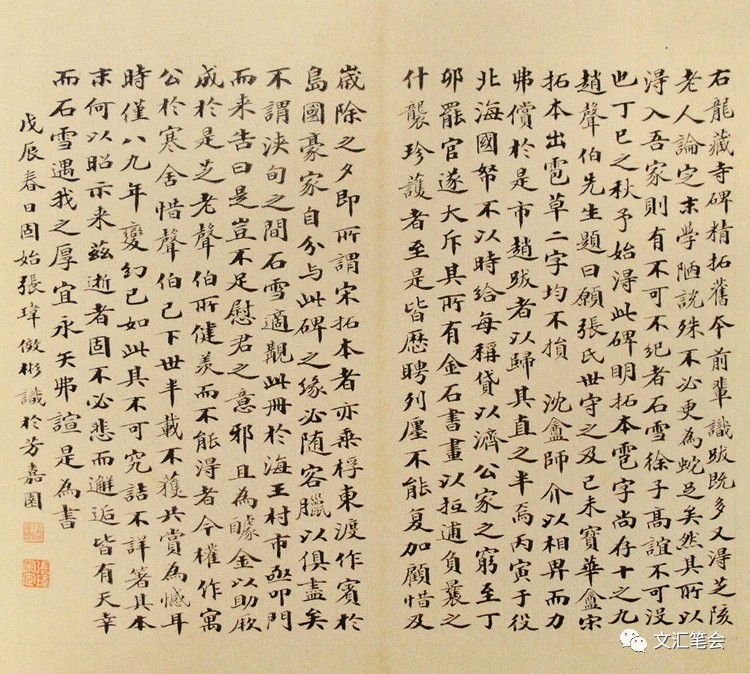 右龍藏寺碑精拓舊本前輩識跋既多又淂芝陔
老人論定末學陋說殊不必更為蛇足矣然其所以
淂入吾家則有不可不紀者石雪徐子高誼不可沒
也丁巳之秋予始淂此碑明拓本雹字尚存十之九
趙聲伯先生題曰願張氏世守之及己未寶華盦宋
拓本出雹草二字均不損 沈盦師介以相畀而力
弗償於是市趙跋者以歸其直之半焉丙寅于役
北海國帑不以時給每稱貸以濟公家之窮至丁
卯罷官遂大斥其所有金石書畫以拉逋負曩之
什襲珍護者至是皆歷聘列廛不能复加顧惜及
歲除之夕即所謂宋拓本者亦乘桴東渡作賓於
島國豪家自分与此碑之緣必随客臘以俱盡矣
不謂浹旬之間石雪適觀此冊於海王村市亟叩門
而来告曰是豈不足慰君之意邪且為醵金以助厥
成於是芝老聲伯所健羨而不能淂者今權作寓
公於寒舍惜聲伯已下世半載不獲共賞為憾耳
時僅八九年變幻已如此其不可究詰不詳箸其本
末何以昭示来茲逝者固不必悲而邂逅皆有天幸
而石雪遇我之厚宜永矢弗諼是為書
戊辰春日固始張瑋傚彬識於芳嘉園
文汇笔会